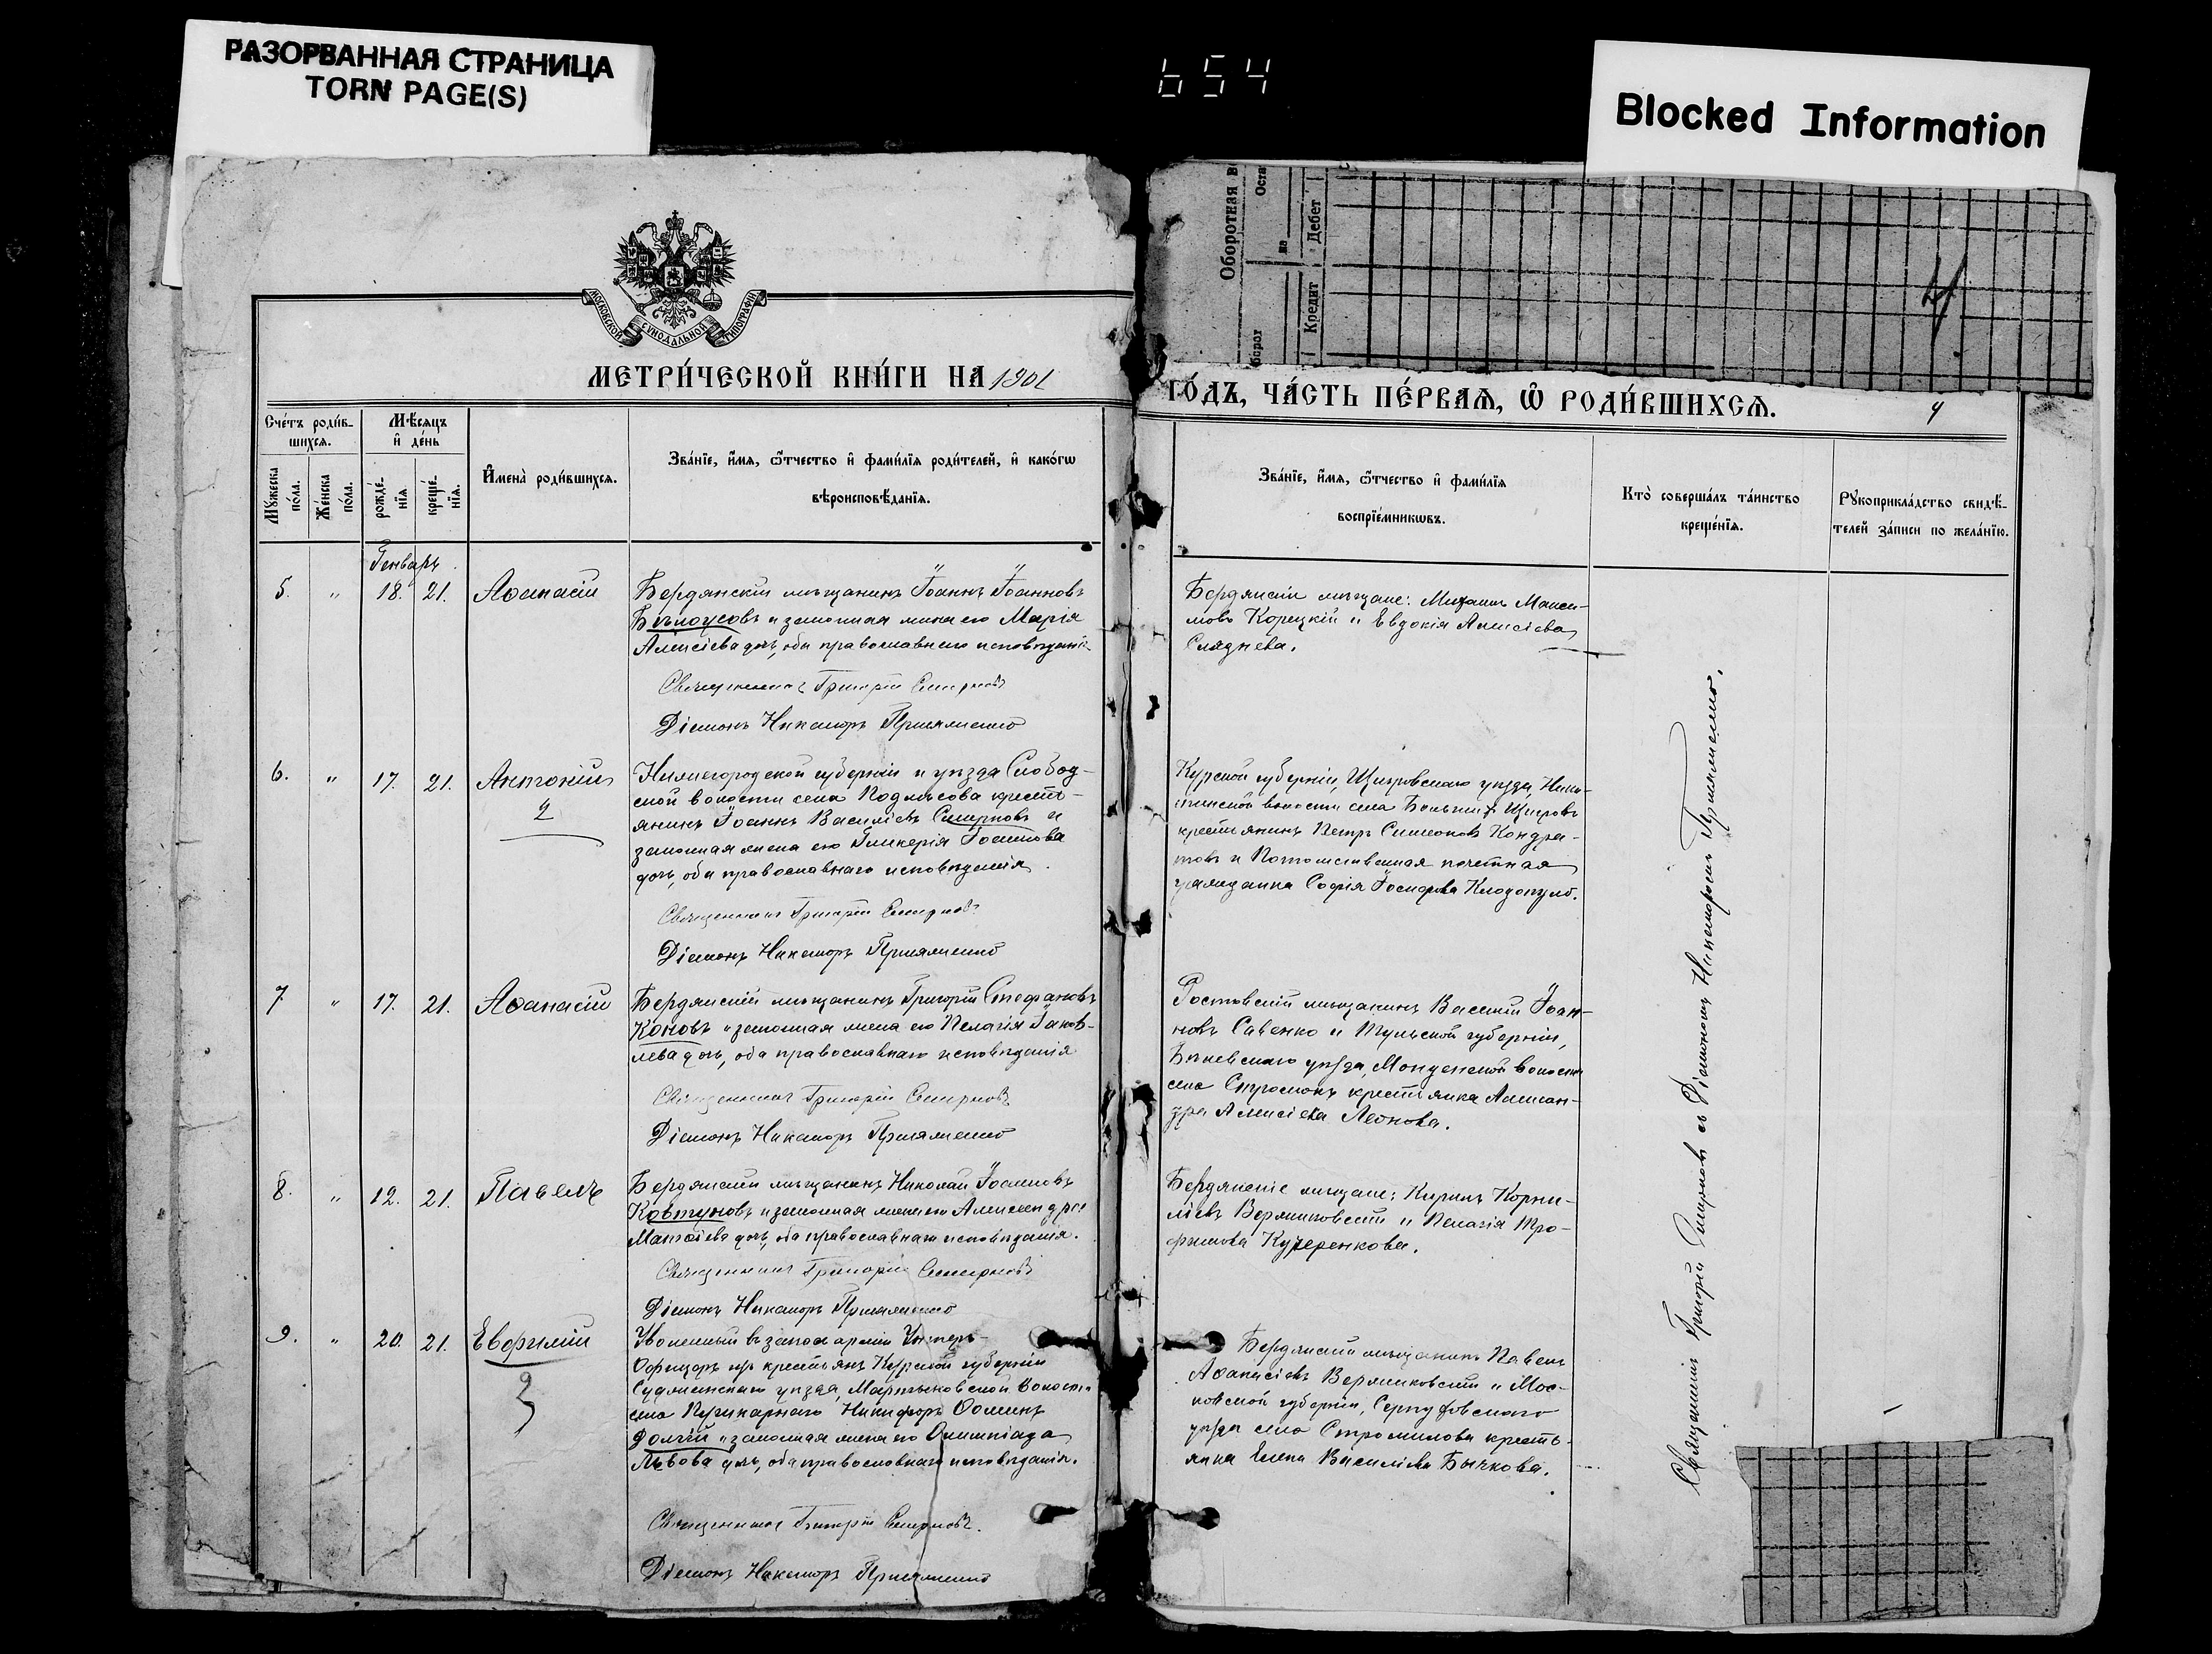 РАЗОРВАННАЯ СТРАНИЦА
TORN PAGE(S)
654
Blocked Information
Оборотная
Дебет
Кредит
МОСКОВСКОЙ СѴНОДАЛЬНОЙ ТИПОГРАФІИ
МЕТРИ́ЧЕСКОЙ КНИ́ГИ НА 1901
ГО́ДЪ, ЧА́СТЬ ПЕ́РВАѦ, Ѡ҆ РОДИ́ВШИХСѦ.
4
Сче́тъ роди́в-
шихсѧ.
Мѣ́сѧцъ
и҆ де́нь
Мꙋ́жеска по́ла.
Же́нска по́ла.
рожде́-
нїѧ.
креще́-
нїѧ.
И҆мена̀ роди́вшихсѧ.
Зва́нїе, и҆́мѧ, ѻ҆́тчество и҆ фами́лїѧ роди́телей, и҆ како́гѡ
вѣроисповѣ́данїѧ.
Зва́нїе, и҆́мѧ, ѻ҆́тчество и҆ фами́лїѧ
воспрїе́мникѡвъ.
Кто̀ соверша́лъ та́инство
креще́нїѧ.
Рꙋкоприкла́дство свидѣ́-
телей за́писи по жела́нїю.
Генварь
5. " 18. 21. Аѳанасій
Бердянскій мѣщанинъ Іоаннъ Іоанновъ
Бѣлоусовъ и законная жена его Марія
Алексіева дочь, оба православнаго исповѣданія
Священникъ Григорій Смирновъ
Діаконъ Никаноръ
Бердянскіе мѣщане: Михаилъ Макси-
мовъ Корецкій и Евдокія Алексіева
Сляднева.
6. " 17. 21. Антоній
2
Нижегородской губерніи и уѣзда Слобод-
ской волости села Подлѣсова кресть-
янинъ Іоаннъ Василіевъ Смирновъ и
законная жена его Гликерія Іоаннова
дочь, оба православнаго исповѣданія.
Священникъ Григорій Смирновъ
Діаконъ Никаноръ
Курской губерніи, Щигровскаго уѣзда,
волости села
крестьянинъ Петръ Симеоновъ Кондра-
товъ и Потомственная почетная
гражданка Софія
7. " 17. 21. Аѳанасій
Бердянскій мѣщанинъ Григорій Стефановъ
Коновъ и законная жена его Пелагія Іаков-
лева дочь, оба православнаго исповѣданія
Священникъ Григорій Смирновъ
Діаконъ Никаноръ
Ростовскій мѣщанинъ Василій Іоан-
новъ Савенко и Тульской губерніи,
уѣзда, волости
села крестьянка Алексан-
дра Алексіева Леонова.
8. " 12. 21. Павелъ
Бердянскій мѣщанинъ Николай Іоанновъ
Ковтуновъ и законная жена его Александра
Матѳіева дочь, оба православнаго исповѣданія.
Священникъ Григорій Смирновъ
Діаконъ Никаноръ
Бердянскіе мѣщане: Кириллъ Корни-
ліевъ и Пелагія Тро-
фимова Кучеренкова.
9. " 20. 21. Евфимій
3
Уволенный въ запасъ арміи Унтеръ-
Офицеръ изъ крестьянъ Курской губерніи
Суджанскаго уѣзда, Мартыновской волости
села Пушкарнаго Никифоръ Ѳоминъ
Долгій и законная жена его Олимпіада
Львова дочь, оба православнаго исповѣданія.
Священникъ Григорій Смирновъ.
Діаконъ Никаноръ
Бердянскій мѣщанинъ Павелъ
Аѳанасіевъ и Мос-
ковской губерніи, Серпуховскаго
уѣзда села Стромилова кресть-
янка Елена Василіева Бычкова.
Священникъ Григорій Смирновъ съ Діакономъ Никаноромъ